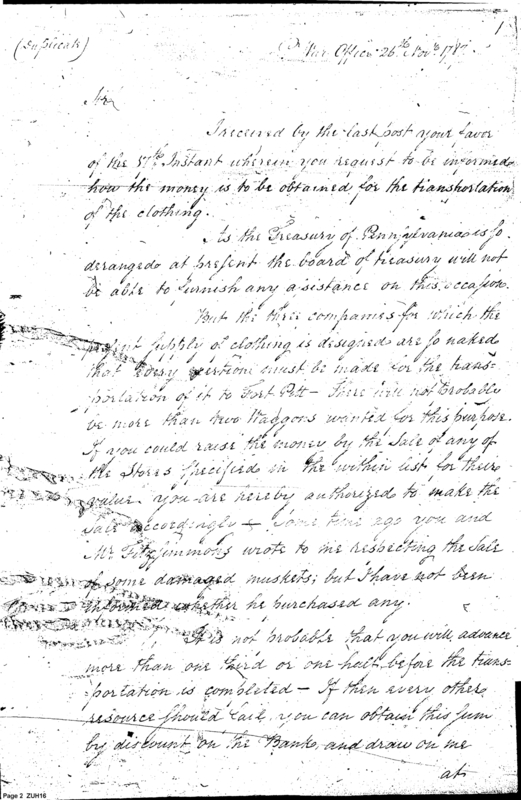 1
(Duplicate) War Office 26th Novr 1787.
Sir
I received by the last post your favor
of the 17th Instant wherein you request to be informed
how the money is to be obtained for the transportation
of the clothing.
As the Treasury of Pennsylvania is so
deranged at present the board of treasury will not
be able to furnish any assistance on this occasion.
But the three companies for which the
present supply of clothing is designed are so naked
that every exertion must be made for the trans-
portation of it to Fort Pitt – There will not probably
be more than two Waggons wanted for this purpose.
If you could raise the money by the Sale of any of
the Stores specified in the within list for their
value you are hereby authorized to make the
sale accordingly – Some time ago you and
Mr Fitzsimmons wrote to me respecting the Sale
of some damaged muskets; but I have not been
informed whether he purchased any.
It is not probable that you will advance
more than one third or one half before the trans-
portation is completed – If then every other
resource should fail, you can obtain this sum
by discount on the Bank, and draw on me
at
Page 2 ZUH16